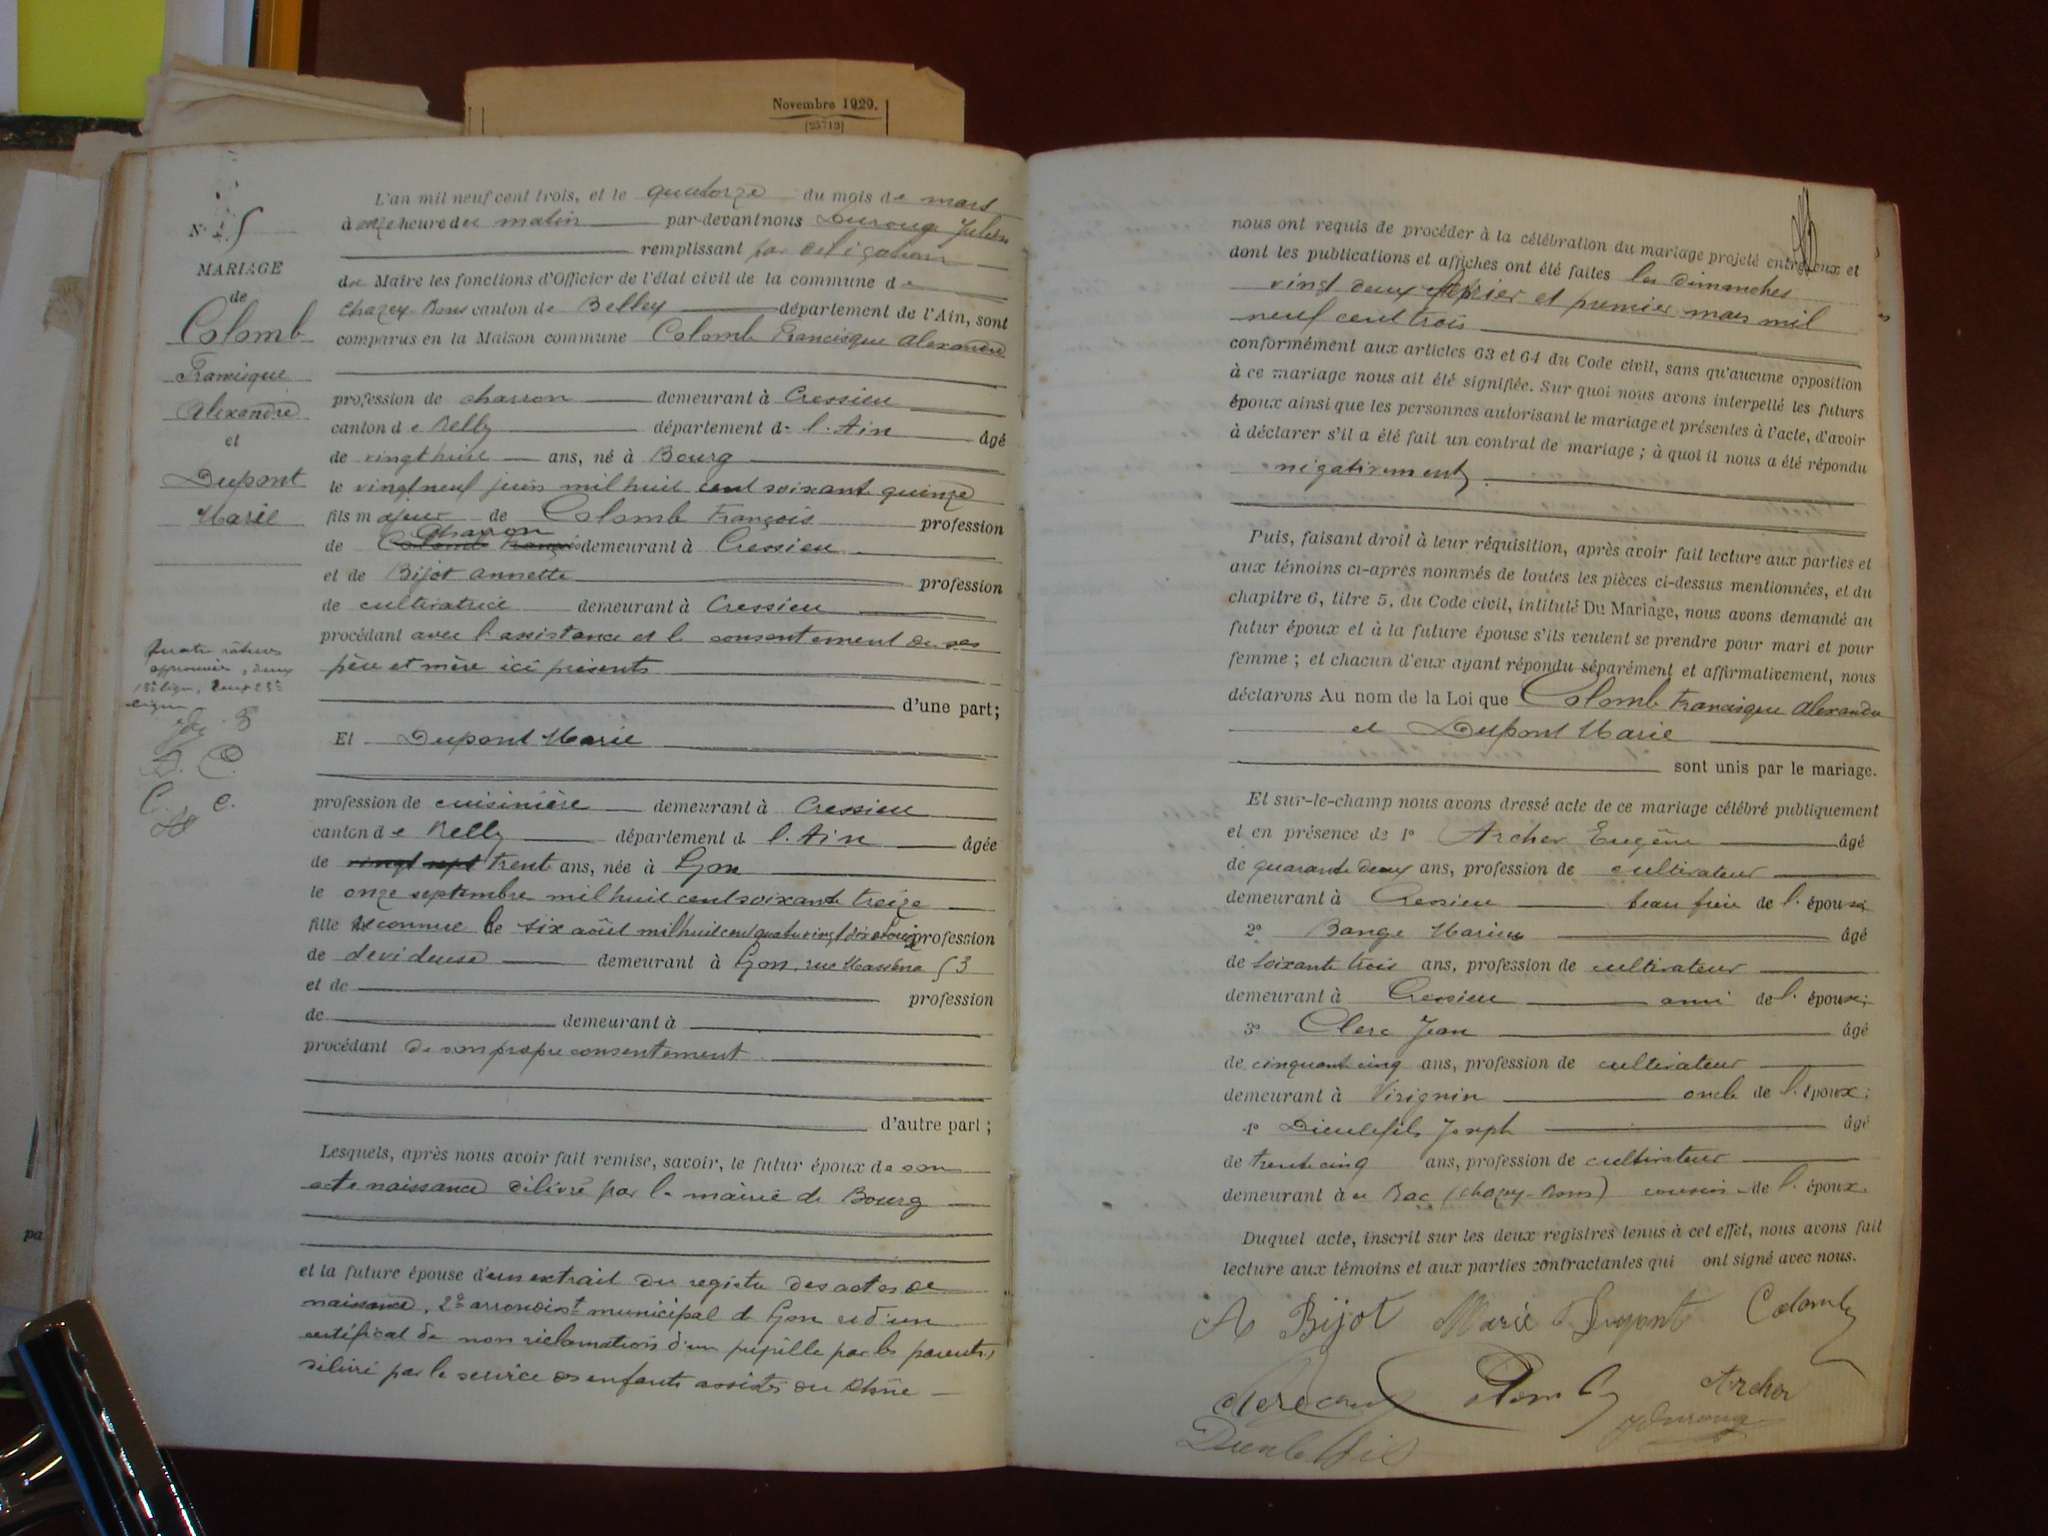 Novembre 1929.
[25713]
N° 5
MARIAGE
de
Colomb
Francisque
Alexandre
et
Dupont
Marie
quatre ratures
approuvées, deux
ligne, deux 23e
ligne
D. C.
C. C.
L'an mil neuf cent trois, et le quatorze du mois de mars
à onze heure du matin par-devant nous Durouge Julien
remplissant par délégation
du Maire les fonctions d'Officier de l'état civil de la commune de
Chazey-Bons canton de Belley département de l'Ain, sont
comparus en la Maison commune Colomb Francisque Alexandre
profession de charron demeurant à Cressieu
canton de Belley département de l'Ain âgé
de vingt huit ans, né à Bourg
le vingt neuf juin mil huit cent soixante quinze
fils majeur de Colomb François profession
charron
de Colomb François demeurant à Cressieu
et de Bijot Annette profession
de cultivatrice demeurant à Cressieu
procédant avec l'assistance et le consentement de ses
père et mère ici présents
d'une part;
Et Dupont Marie
profession de cuisinière demeurant à Cressieu
canton de Belley département de l'Ain âgée
de vingt sept trent ans, née à Lyon
le onze septembre mil huit cent soixante treize
fille reconnue le six août mil huit cent quatre vingt dix profession
de devideuse demeurant à Lyon, rue Masséna 53
et de profession
de demeurant à
procédant de son propre consentement
d'autre part;
Lesquels, après nous avoir fait remise, savoir, le futur époux de son
acte naissance délivré par la mairie de Bourg
et la future épouse d'un extrait du registre des actes de
naissance, 2e arrondist municipal de Lyon et d'un
certificat de non réclamation d'un pupille par les parents,
délivré par le service des enfants assistés du Rhône
nous ont requis de procéder à la célébration du mariage projeté entre eux et
dont les publications et affiches ont été faites les dimanches
vingt deux février et premier mars mil
neuf cent trois
conformément aux articles 63 et 64 du Code civil, sans qu'aucune opposition
à ce mariage nous ait été signifiée. Sur quoi nous avons interpellé les futurs
époux ainsi que les personnes autorisant le mariage et présentes à l'acte, d'avoir
à déclarer s'il a été fait un contrat de mariage; à quoi il nous a été répondu
négativement
Puis, faisant droit à leur réquisition, après avoir fait lecture aux parties et
aux témoins ci-après nommés de toutes les pièces ci-dessus mentionnées, et du
chapitre 6, titre 5, du Code civil, intitulé Du Mariage, nous avons demandé au
futur époux et à la future épouse s'ils veulent se prendre pour mari et pour
femme; et chacun d'eux ayant répondu séparément et affirmativement, nous
déclarons Au nom de la Loi que Colomb Francisque Alexandre
et Dupont Marie
sont unis par le mariage.
Et sur-le-champ nous avons dressé acte de ce mariage célébré publiquement
et en présence de 1° Archer Eugène âgé
de quarante deux ans, profession de cultivateur
demeurant à Cressieu beau frère de l'épouse
2° Bange Marius âgé
de soixante trois ans, profession de cultivateur
demeurant à Cressieu ami de l'épouse;
3° Clerc Jean âgé
de cinquante cinq ans, profession de cultivateur
demeurant à Virignin oncle de l'époux;
4° Dieulefils Joseph âgé
de trente cinq ans, profession de cultivateur
demeurant à Bac (Chazey-Bons) cousin de l'époux.
Duquel acte, inscrit sur les deux registres tenus à cet effet, nous avons fait
lecture aux témoins et aux parties contractantes qui ont signé avec nous.
A Bijot Marie Dupont Colomb
Clerc Archer
JDurouge
Dieulefils